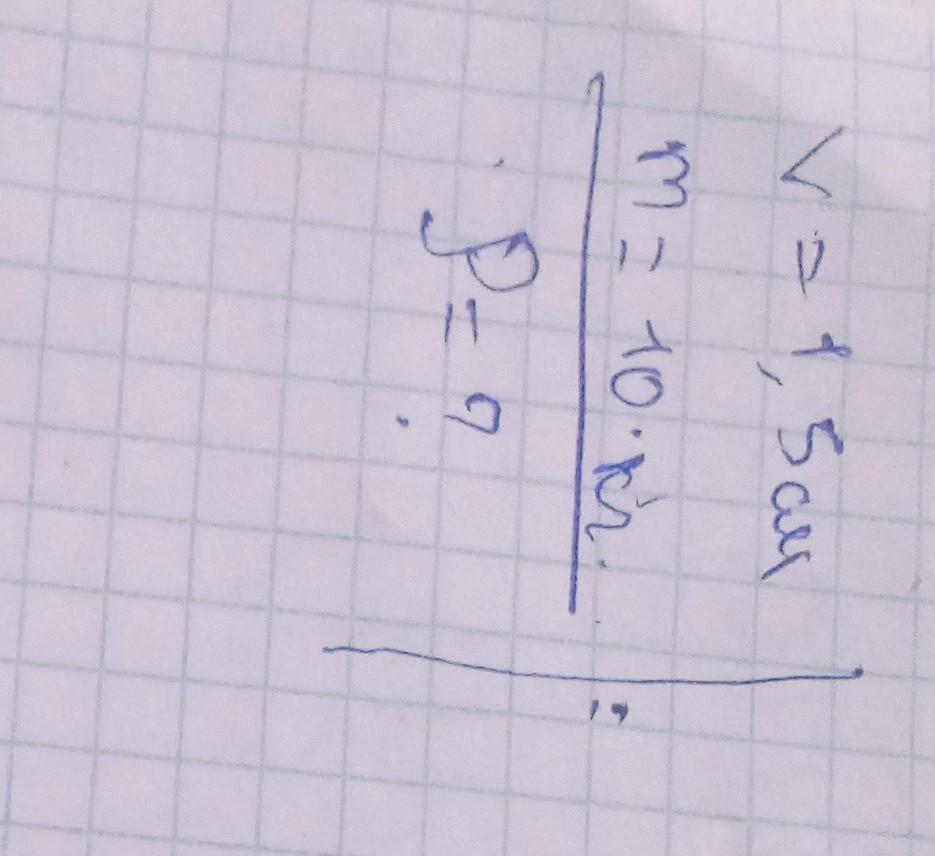 V = 1,5 см
m = 10 кг.
ρ = ?